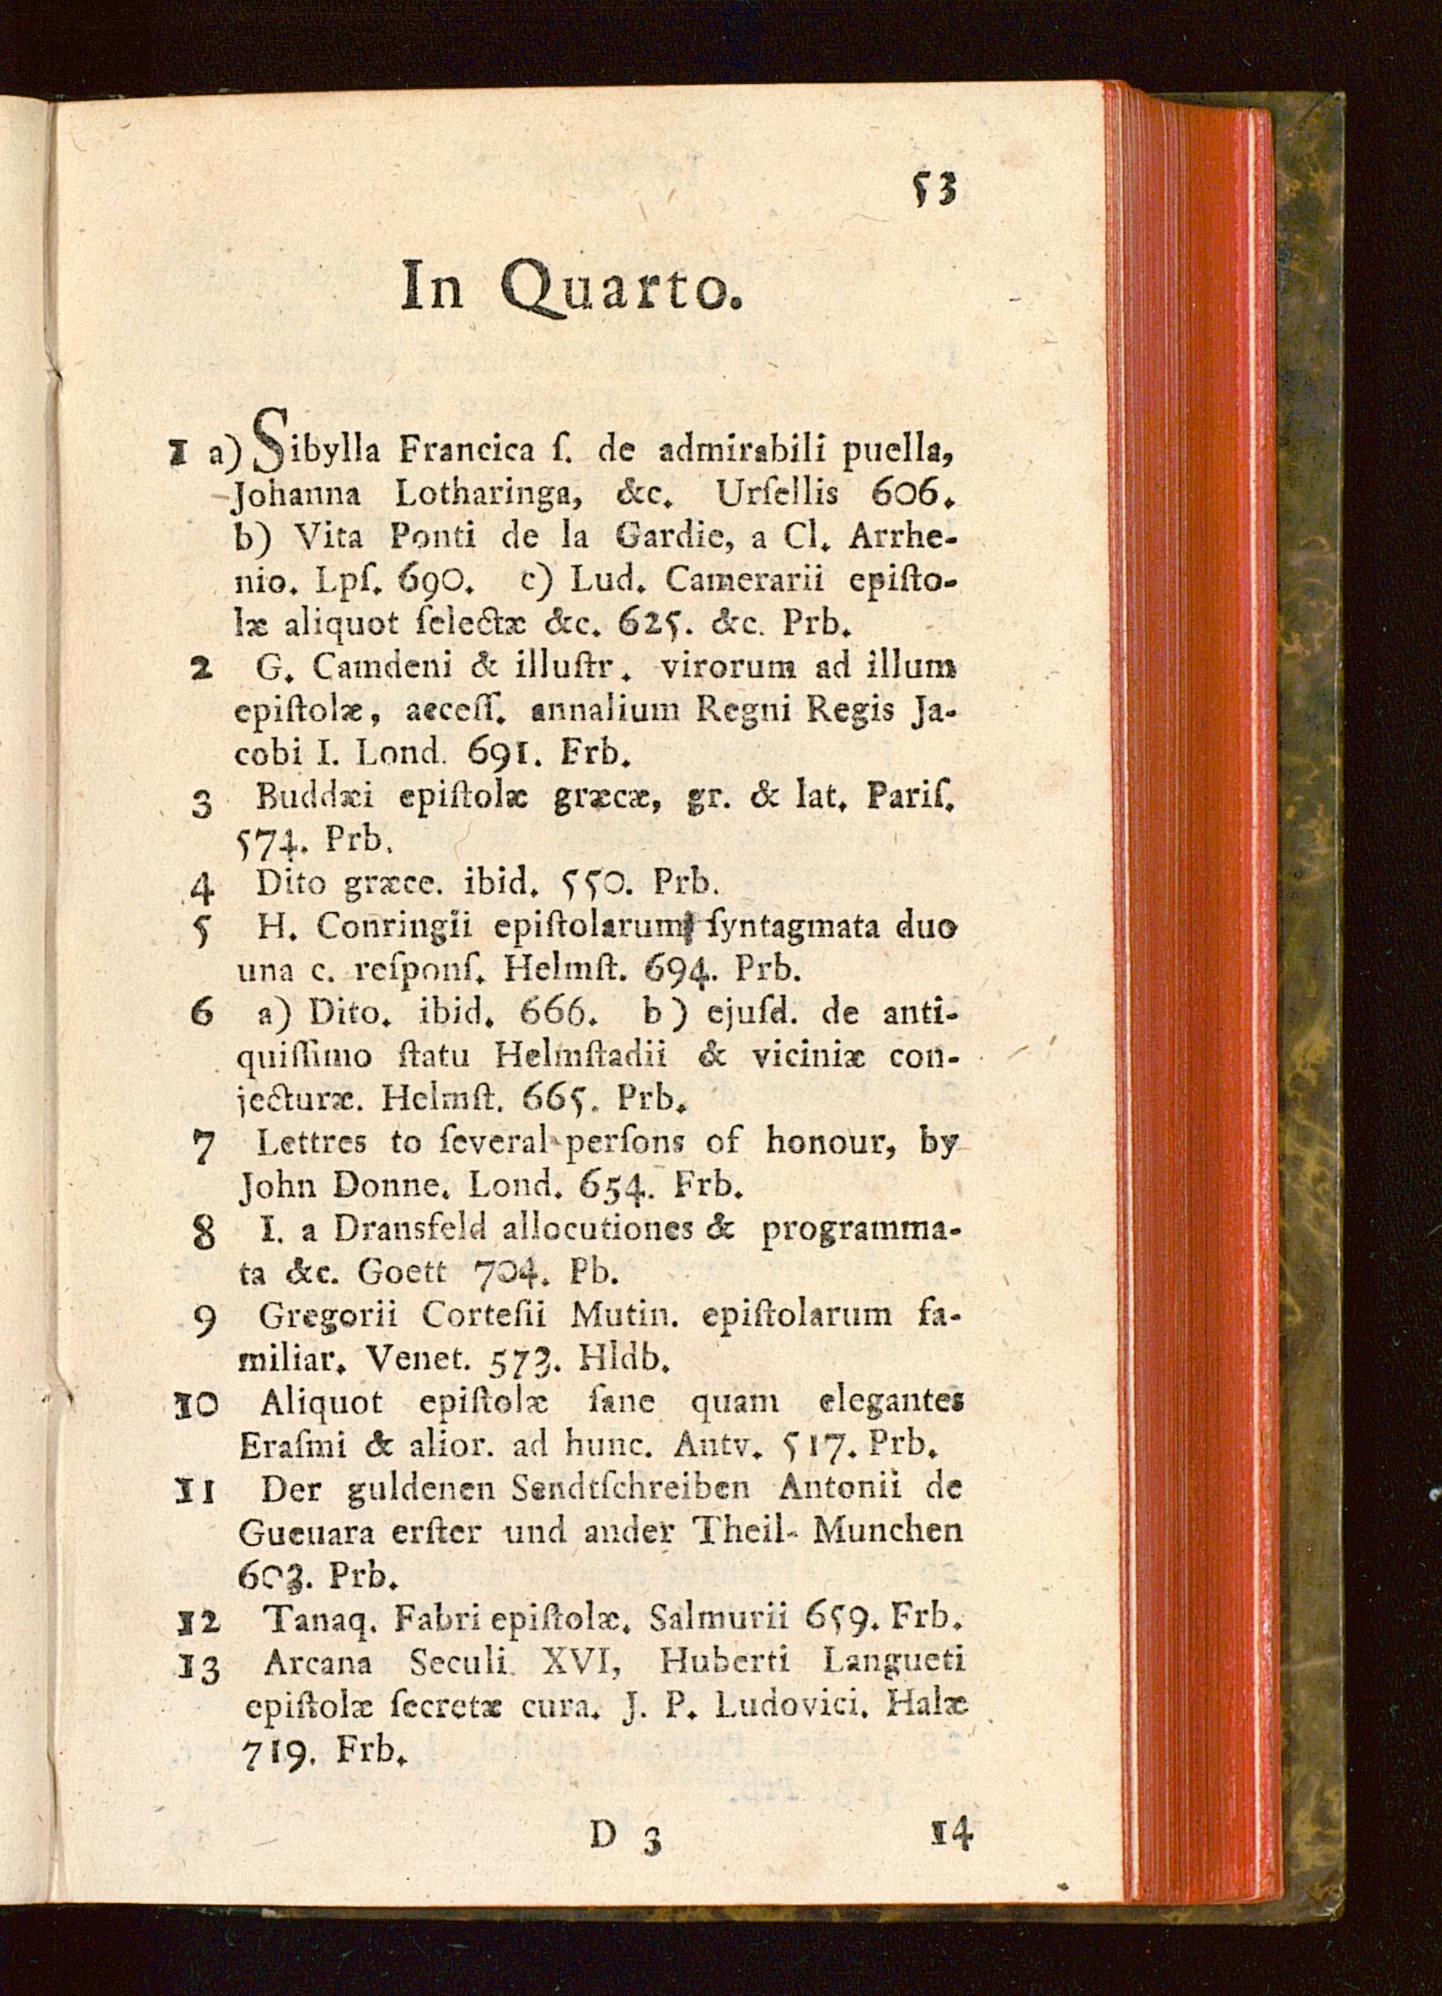 53
In Quarto.
1 a) Sibylla Francica ſ. de admirabili puella,
Johanna Lotharinga, &c. Urſellis 606.
b) Vita Ponti de la Gardie, a Cl. Arrhe-
nio. Lpſ. 690. c) Lud. Camerarii epiſto-
læ aliquot ſelectæ &c. 625. &c. Prb.
2 G. Camdeni & illuſtr. virorum ad illum
epiſtolæ, acceſſ. annalium Regni Regis Ja-
cobi I. Lond. 691. Frb.
3 Buddæi epiſtolæ græcæ, gr. & lat. Pariſ.
574. Prb.
4 Dito græce. ibid. 550. Prb.
5 H. Conringii epiſtolarum ſyntagmata duo
una c. reſponſ. Helmſt. 694. Prb.
6 a) Dito. ibid. 666. b) ejuſd. de anti-
quiſſimo ſtatu Helmſtadii & viciniæ con-
jecturæ. Helmſt. 665. Prb.
7 Lettres to ſeveral perſons of honour, by
John Donne. Lond. 654. Frb.
8 I. a Dransfeld allocutiones & programma-
ta &c. Goett 704. Pb.
9 Gregorii Corteſii Mutin. epiſtolarum fa-
miliar. Venet. 573. Hldb.
10 Aliquot epiſtolæ ſane quam elegantes
Eraſmi & alior. ad hunc. Antv. 517. Prb.
11 Der guldenen Sendtſchreiben Antonii de
Gueuara erſter und ander Theil- Munchen
603. Prb.
12 Tanaq. Fabri epiſtolæ. Salmurii 659. Frb.
13 Arcana Seculi XVI, Huberti Langueti
epiſtolæ ſecretæ cura. J. P. Ludovici. Halæ
719. Frb.
D 3 14